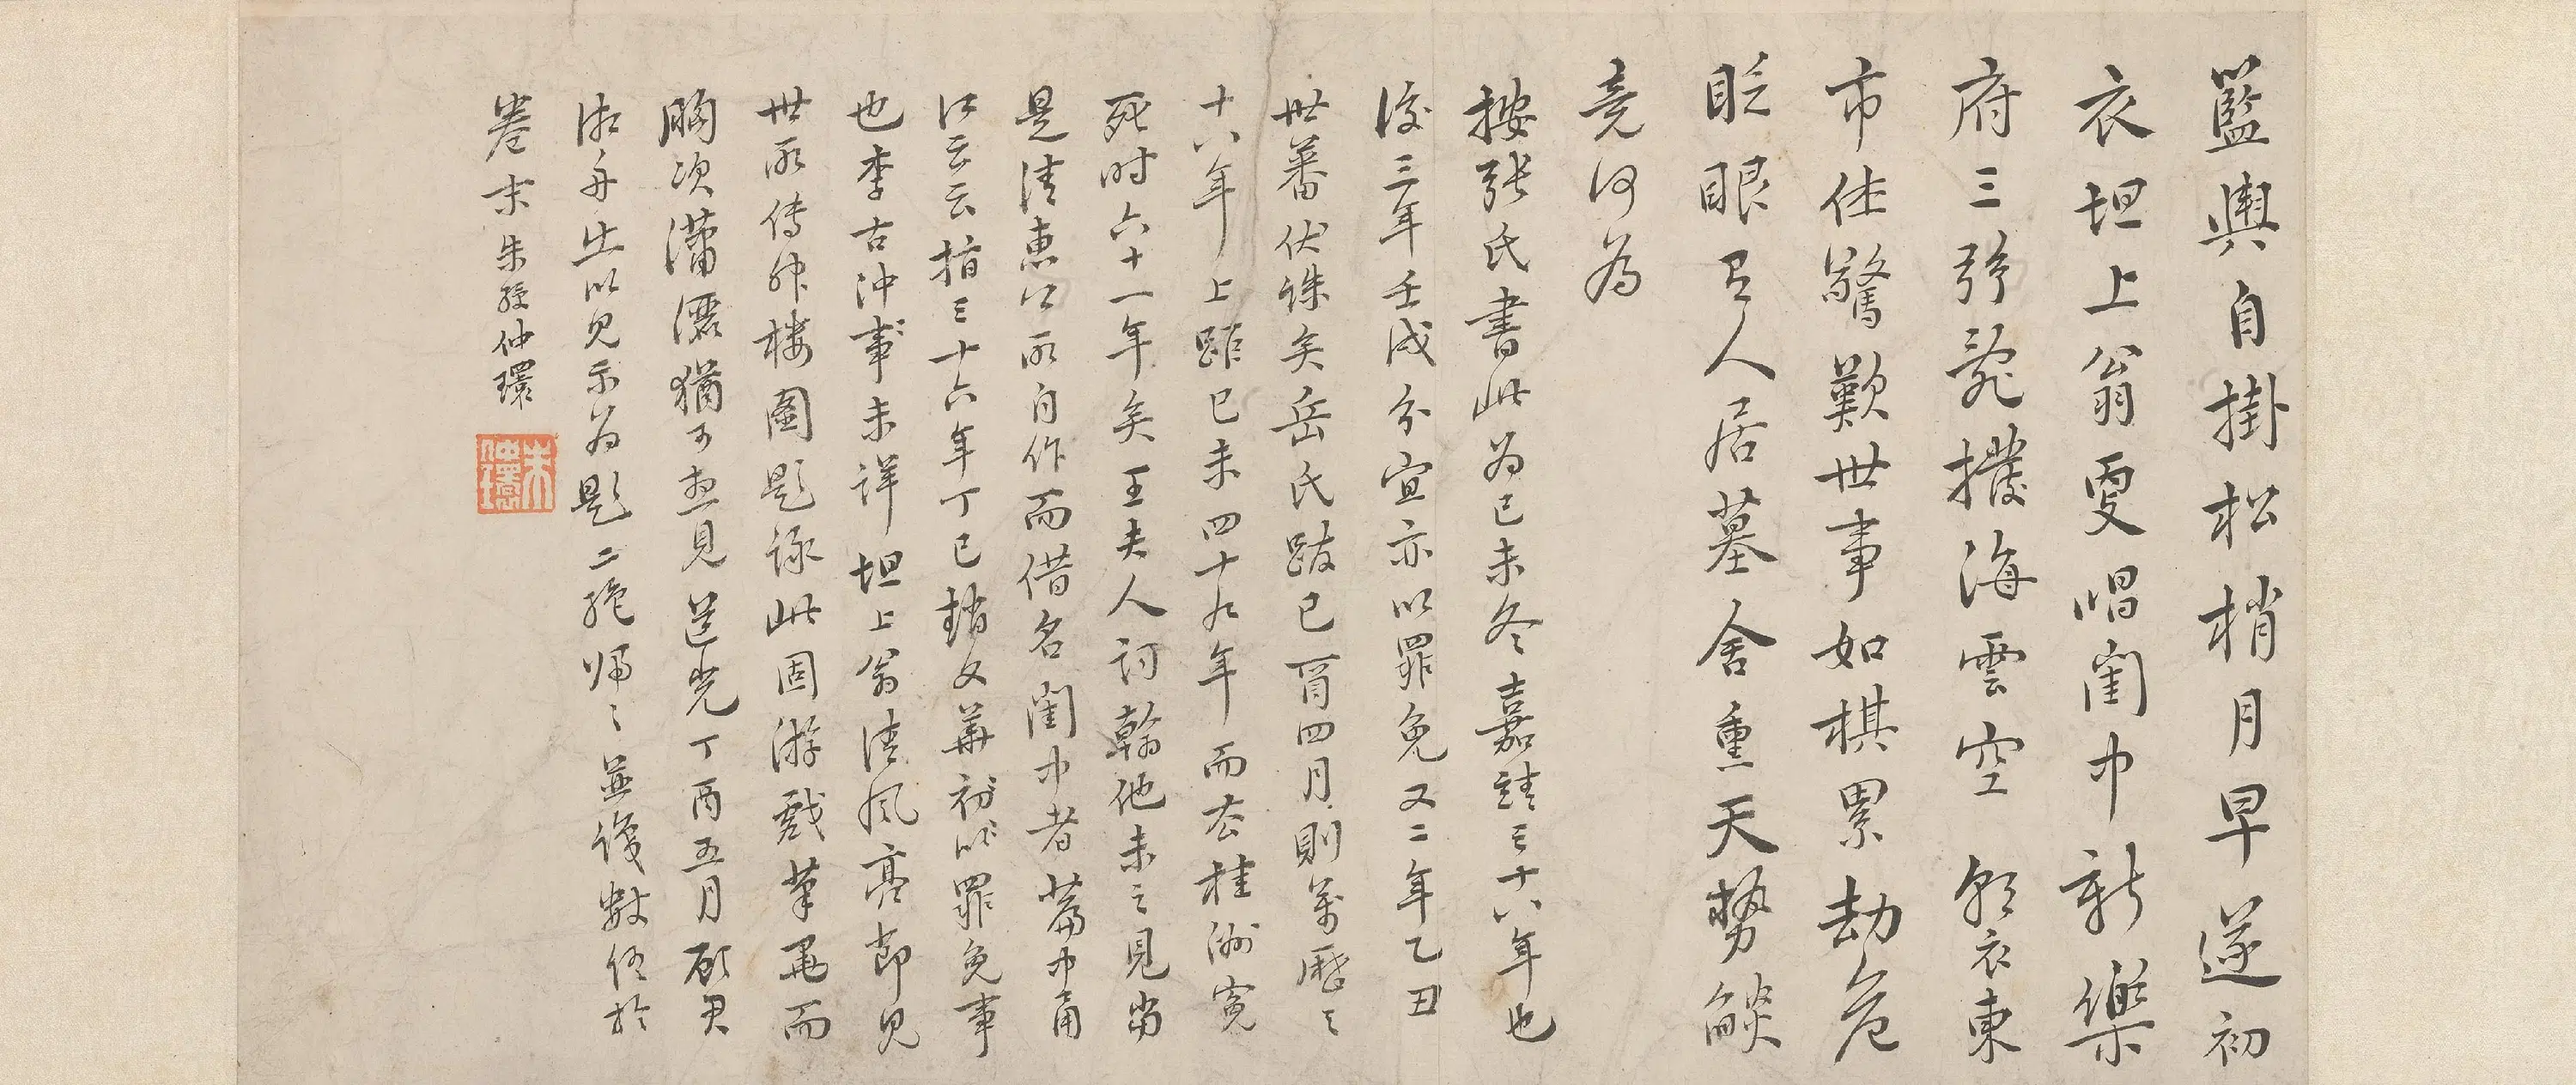 籃輿自掛松梢月早遂初
衣坦上翁更唱閨中新樂
府三弦親撥海雲空朝衣東
市任驚歎世事如棋累劫危
眨眼有人居墓舍熏天勢燄
竟何為
按張氏書此為已未冬嘉靖三十八年也
後三年壬戌分宜亦以罪免又二年乙丑
世蕃伏誅矣岳氏跋已酉四月則萬曆三
十八年上距已未四十九年而去桂洲冤
死時六十一年矣王夫人詞翰他未之見当
是清惠公所自作而借名閨中者篇中甬
江云云指三十六年丁巳趙文華初以罪免事
也李古沖事未詳坦上翁清風高節見
世所傳神樓圖題詠此固游戲筆墨而
胸次瀟灑猶可想見道光丁酉五月顧君
湘舟出以見示為題二絶歸之並復數行於
卷末朱綬仲環
朱仲環